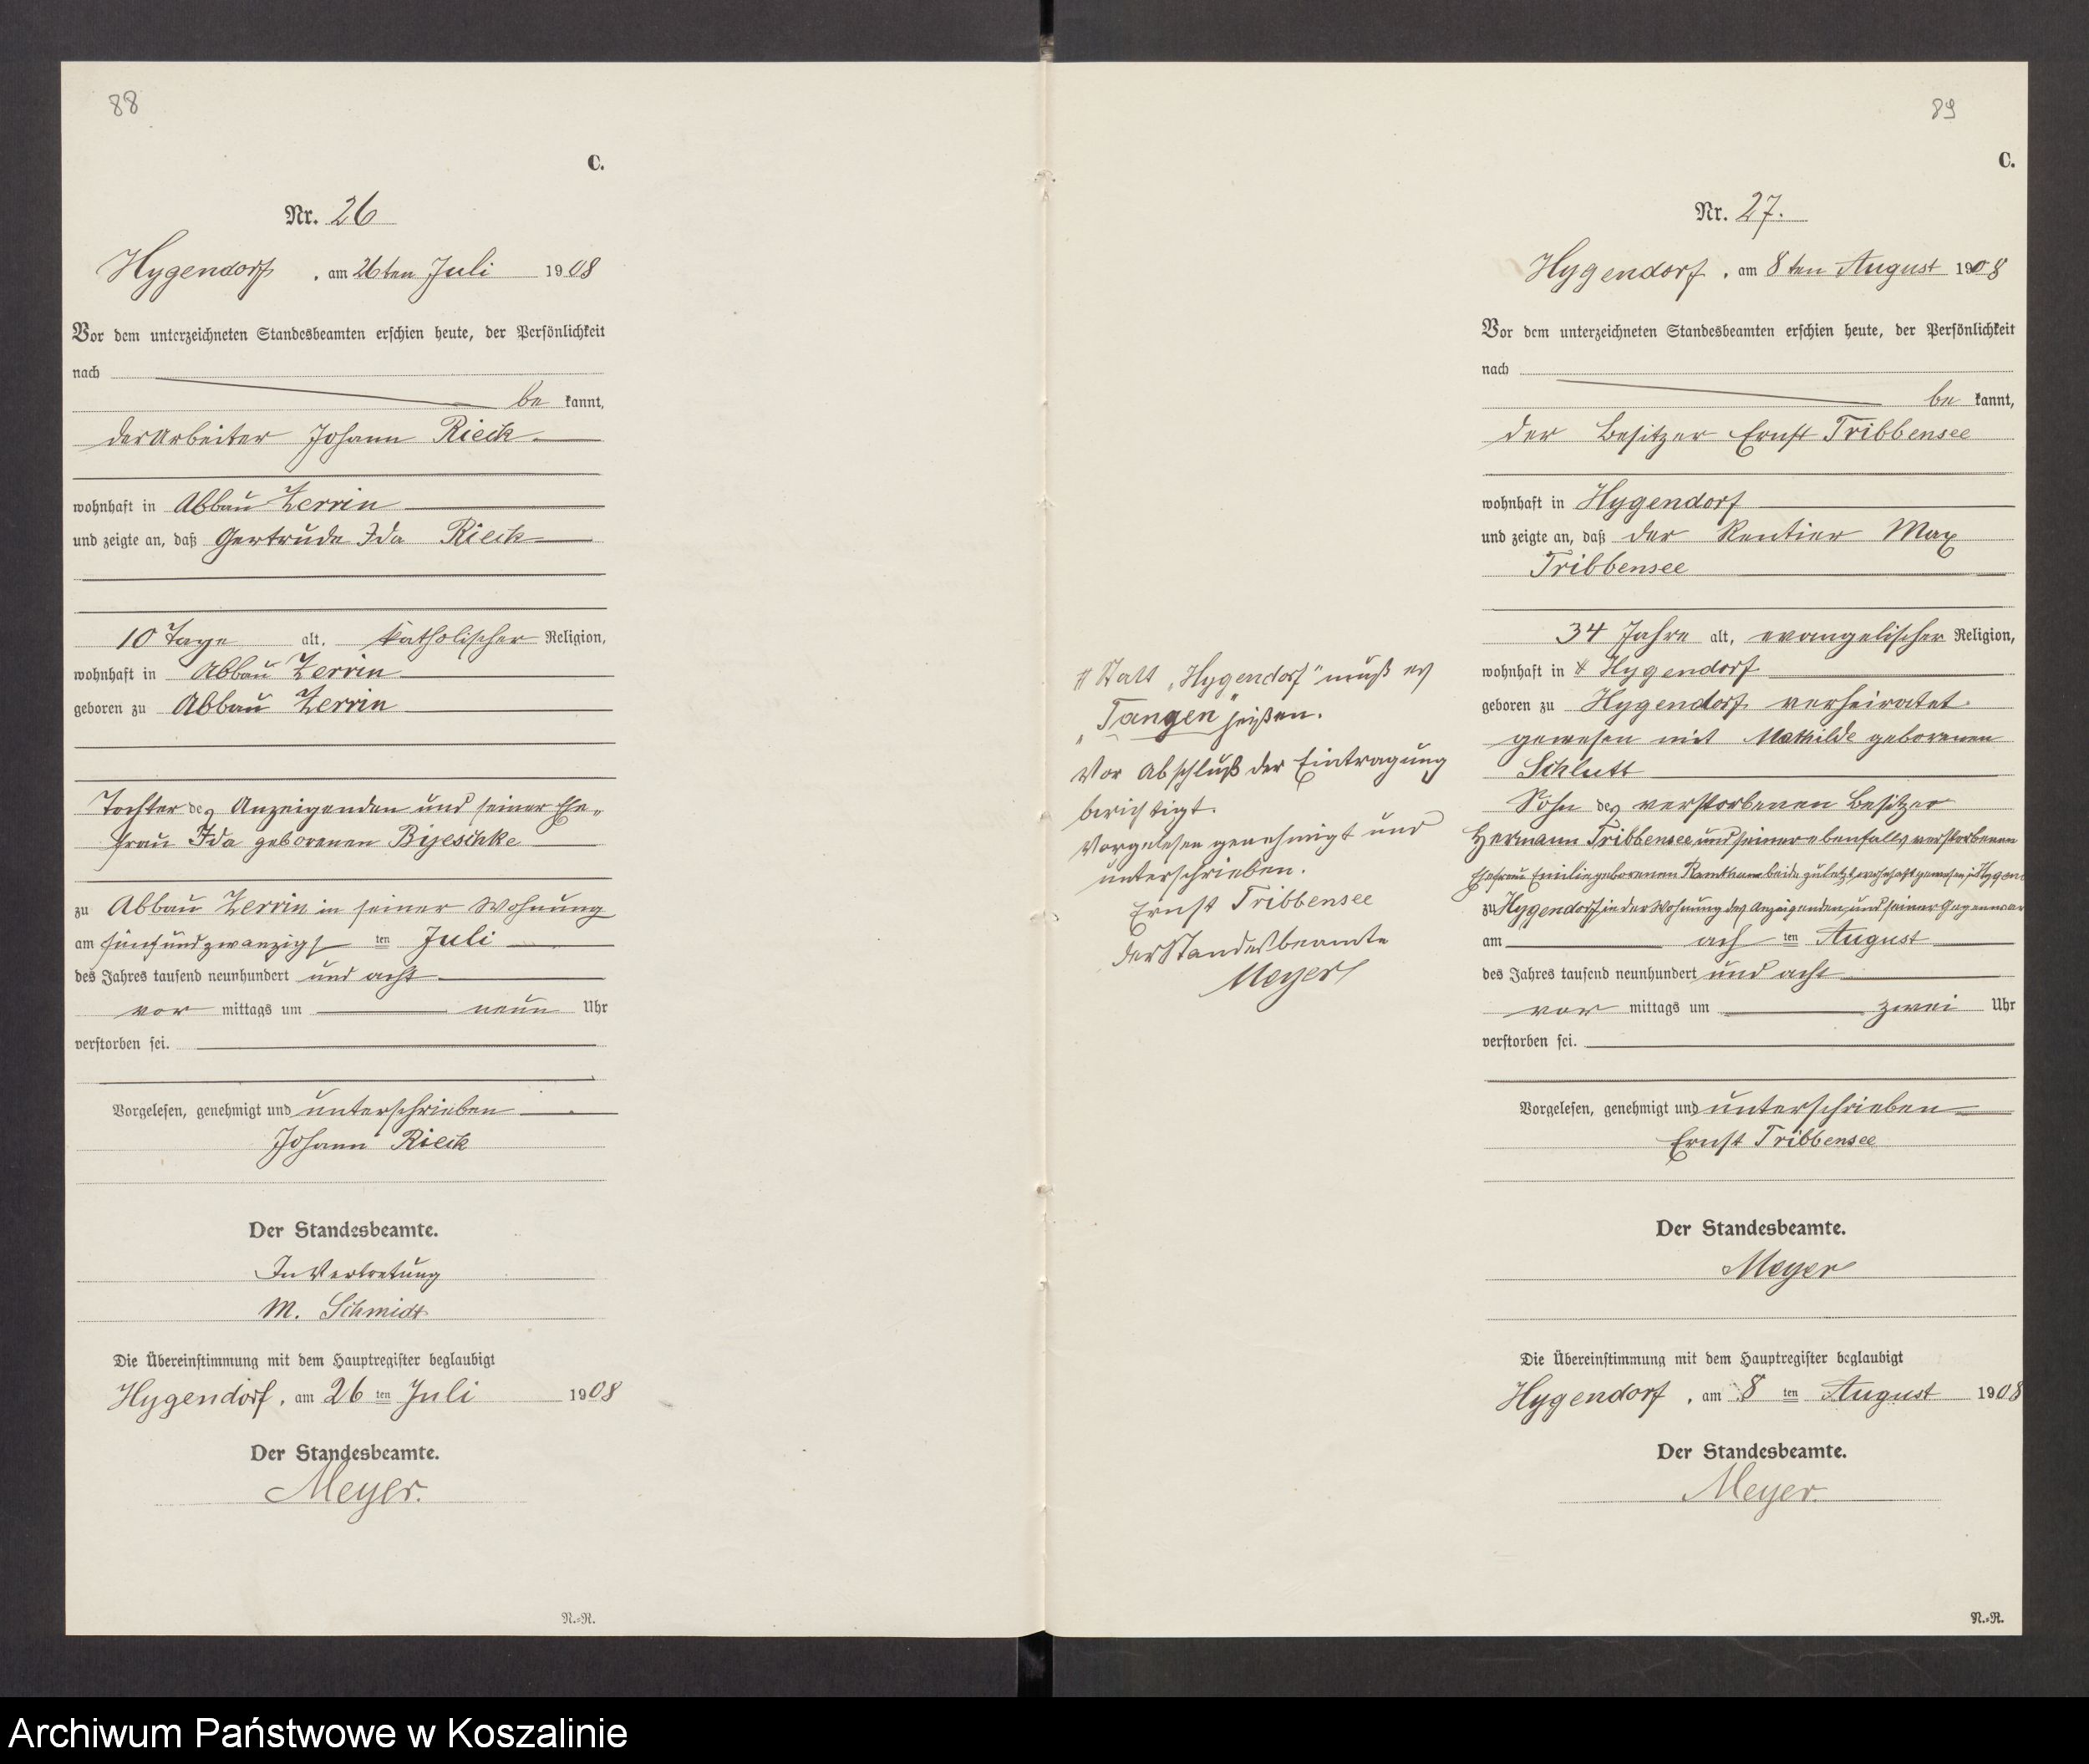 88
C.
Nr. 26
Hygendorf, am 26ten Juli 1908
Vor dem unterzeichneten Standesbeamten erschien heute, der Persönlichkeit
nach
be kannt,
der Arbeiter Johann Rieck
wohnhaft in Abbau Zerrin
und zeigte an, daß Gertrude Ida Rieck
10 Tage alt, katholischer Religion,
wohnhaft in Abbau Zerrin
geboren zu Abbau Zerrin
Tochter des Anzeigenden und seiner Ehe-
frau Ida geborenen Byeschke
zu Abbau Zerrin in seiner Wohnung
am fünfundzwanzigs ten Juli
des Jahres tausend neunhundert und acht
vor mittags um neun Uhr
verstorben sei.
Vorgelesen, genehmigt und unterschrieben
Johann Rieck
Der Standesbeamte.
In Vertretung
M. Schmidt
Die Übereinstimmung mit dem Hauptregister beglaubigt
Hygendorf, am 26 ten Juli 1908
Der Standesbeamte.
Meyer.
N.=R.
# Statt „Hygendorf" muß es
„Tangen" heißen.
Vor Abschluß der Eintragung
berichtigt.
Vorgelesen genehmigt und
unterschrieben.
Ernst Tribbensee
der Standesbeamte
Meyer
89
C.
Nr. 27.
Hygendorf, am 8ten August 1908
Vor dem unterzeichneten Standesbeamten erschien heute, der Persönlichkeit
nach
be kannt,
der Besitzer Ernst Tribbensee
wohnhaft in Hygendorf
und zeigte an, daß der Rentier Max
Tribbensee
34 Jahre alt, evangelischer Religion,
wohnhaft in # Hygendorf
geboren zu Hygendorf verheiratet
gewesen mit Mathilde geborenen
Schlutt
Sohn des verstorbenen Besitzer
Hermann Tribbensee und seiner ebenfalls verstorbenen
Ehefrau Emilie geborenen beide zuletzt wohnhaft gewesen in Hygend
zu Hygendorf in der Wohnung des Anzeigenden und seiner Gegenwar
am ach ten August
des Jahres tausend neunhundert und acht
vor mittags um zwei Uhr
verstorben sei.
Vorgelesen, genehmigt und unterschrieben
Ernst Tribbensee
Der Standesbeamte.
Meyer
Die Übereinstimmung mit dem Hauptregister beglaubigt
Hygendorf, am 8 ten August 1908
Der Standesbeamte.
Meyer.
N.=R.
Archiwum Państwowe w Koszalinie